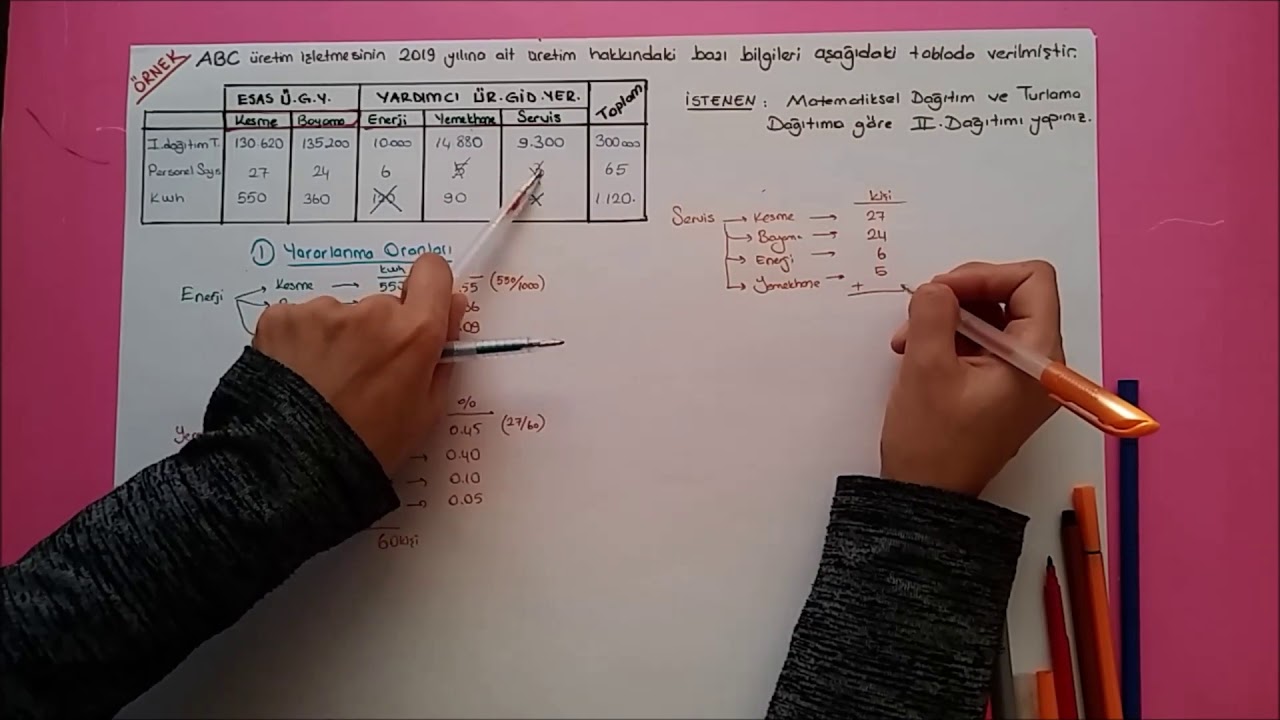 ÖRNEK
ABC üretim işletmesinin 2019 yılına ait üretim hakkındaki bazı bilgileri aşağıdaki tabloda verilmiştir.
ESAS Ü.G.Y. YARDIMCI ÜR.GİD.YER. Toplam
Kesme Boyama Enerji Yemekhane Servis
I.dağıtım T. 130.620 135.200 10.000 14.880 9.300 300.000
Personel Sayı 27 24 6 5 65
Kwh 550 360 120 90 1.120.
İSTENEN : Matematiksel Dağıtım ve Turlama
Dağıtıma göre II. Dağıtımı yapınız.
① Yararlanma Oranları
kwh
Enerji Kesme 550 .55 (550/1000)
.36
.08
%
0.45 (27/60)
0.40
0.10
0.05
60 kişi
kişi
Servis Kesme 27
Boyama 24
Enerji 6
Yemekhane 5
+